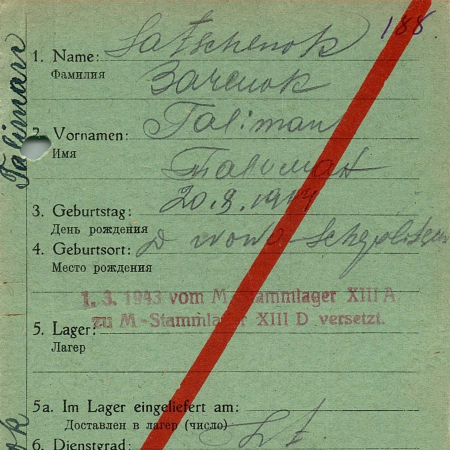 188.
1. Name: Satschenok
Фамилия Заченок
2. Vornamen: Taliman
Имя Талиман
3. Geburtstag: 20.8.
День рождения
4. Geburtsort:
Место рождения
1. 3. 1943 vom M-Stammlager XIII A
zu M-Stammlager XIII D versetzt.
5. Lager:
Лагерь
5a. Im Lager eingeliefert am:
Доставлен в лагерь (число)
6. Dienstgrad:
Taliman